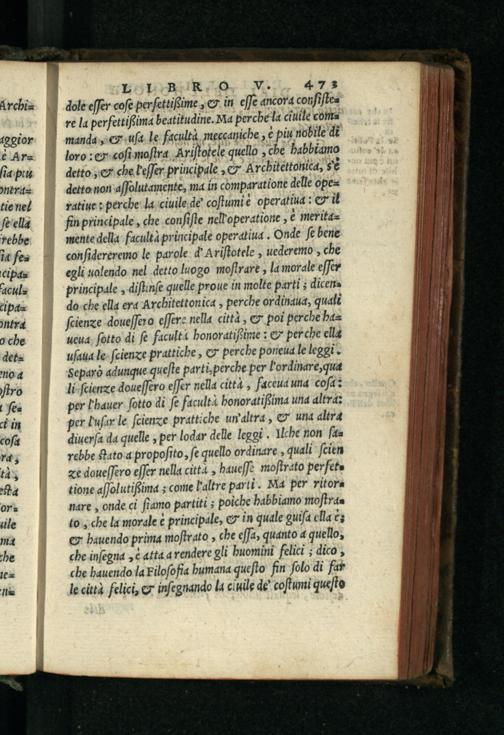 LIBRO V. 473
dole esser cose perfettißime, & in esse ancora consiste=
re la perfettißima beatitudine. Ma perche la ciuile com=
manda, & usa le facultà meccaniche, è piu nobile di
loro: & cosi mostra Aristotele quello, che habbiamo
detto, & che l'esser principale, & Architettonica, s'è
detto non assolutamente, ma in comparatione delle ope=
ratiue: perche la ciuile de' costumi è operatiua: & il
fin principale, che consiste nell'operatione, è merita=
mente della facultà principale operatiua. Onde se bene
considereremo le parole d'Aristotele, uederemo, che
egli uolendo nel detto luogo mostrare, la morale esser
principale, distinse quelle proue in molte parti; dicen=
do che ella era Architettonica, perche ordinaua, quali
scienze douessero essere nella città, & poi perche ha=
ueua sotto di se facultà honoratißime: & perche ella
usaua le scienze prattiche, & perche poneua le leggi.
Separò adunque queste parti, perche per l'ordinare, qua
li scienze douessero esser nella città, faceua una cosa:
per l'hauer sotto di se facultà honoratißima una altra:
per l'usar le scienze prattiche un'altra, & una altra
diuersa da quelle, per lodar delle leggi. Ilche non sa=
rebbe stato a proposito, se quello ordinare, quali scien
ze douessero esser nella città, hauesse mostrato perfet=
tione assolutißima; come l'altre parti. Ma per ritor=
nare, onde ci siamo partiti; poiche habbiamo mostra=
to, che la morale è principale, & in quale guisa ella è;
& hauendo prima mostrato, che essa, quanto a quello,
che insegna, è atta a rendere gli huomini felici; dico,
che hauendo la Filosofia humana questo fin solo di far
le città felici, & insegnando la ciuile de' costumi questo